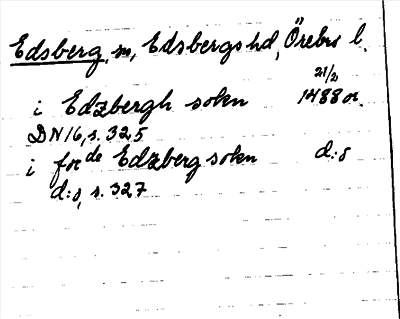 Edsberg, sn, Edsbergs hd, Örebro l.
i Edzbergh sokn 21/2 1488 or.
DN 16, s. 325
i forde Edzberg sokn d:o
d:o, s. 327